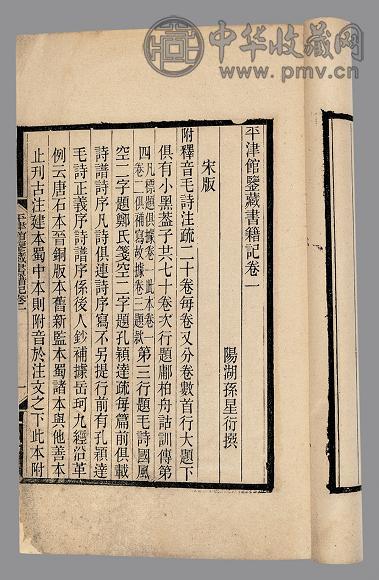 中华收藏网
www.pmv.cn
平津館鑒藏書籍記卷一
陽湖孫星衍撰
宋版
附釋音毛詩注疏二十卷每卷又分卷數首行大題下
俱有小黑蓋子共七十卷次行題鄘柏舟詁訓傳第
四凡標題俱據卷一此本卷一卷二俱補寫故據卷三題款第三行題毛詩國風
空二字題鄭氏箋空二字題孔穎達疏每篇前俱載
詩譜詩序凡詩俱連詩序寫不另提行前有孔穎達
毛詩正義序詩譜序係後人鈔補據岳珂九經沿革
例云唐石本晉銅版本舊新監本蜀諸本與他善本
止刋古注建本蜀中本則附音於注文之下此本附
平津館鑒藏書籍記卷一